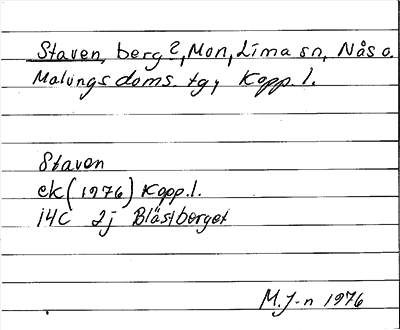 Staven, berg?, Mon, Lima sn, Nås o.
Malungs doms. tg, Kopp. l.
Staven
ek (1976) Kopp. l.
14C 2j Blästberget
M.J-n 1976